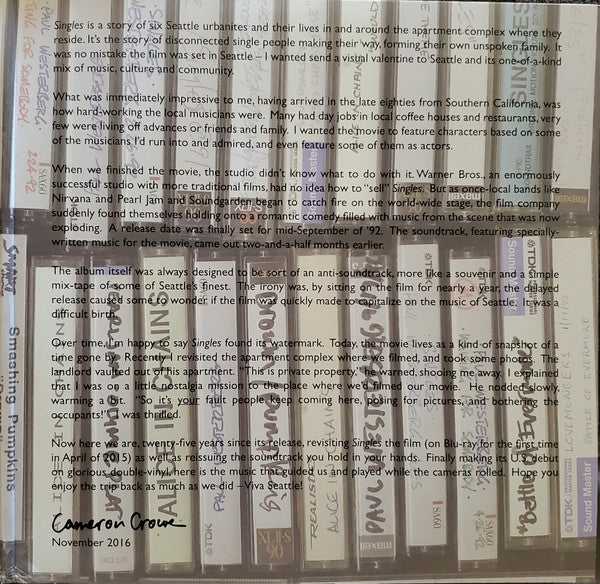 Singles is a story of six Seattle urbanites and their lives in and around the apartment complex where they
reside. It's the story of disconnected single people making their way, forming their own unspoken family. It
was no mistake the film was set in Seattle – I wanted send a visual valentine to Seattle and its one-of-a-kind
mix of music, culture and community.
What was immediately impressive to me, having arrived in the late eighties from Southern California, was
how hard-working the local musicians were. Many had day jobs in local coffee houses and restaurants, very
few were living off advances or friends and family. I wanted the movie to feature characters based on some
of the musicians I'd run into and admired, and even feature some of them as actors.
When we finished the movie, the studio didn't know what to do with it. Warner Bros., an enormously
successful studio with more traditional films, had no idea how to "sell" Singles. But as once-local bands like
Nirvana and Pearl Jam and Soundgarden began to catch fire on the world-wide stage, the film company
suddenly found themselves holding onto a romantic comedy filled with music from the scene that was now
exploding. A release date was finally set for mid-September of '92. The soundtrack, featuring specially-
written music for the movie, came out two-and-a-half months earlier.
The album itself was always designed to be sort of an anti-soundtrack, more like a souvenir and a simple
mix-tape of some of Seattle's finest. The irony was, by sitting on the film for nearly a year, the delayed
release caused some to wonder if the film was quickly made to capitalize on the music of Seattle. It was a
difficult birth.
Over time, I'm happy to say Singles found its watermark. Today, the movie lives as a kind of snapshot of a
time gone by. Recently I revisited the apartment complex where we filmed, and took some photos. The
landlord vaulted out of his apartment. "This is private property," he warned, shooing me away. I explained
that I was on a little nostalgia mission to the place where we'd filmed our movie. He nodded slowly,
warming a bit. "So it's your fault people keep coming here, posing for pictures, and bothering the
occupants!" I was thrilled.
Now here we are, twenty-five years since its release, revisiting Singles the film (on Blu-ray for the first time
in April of 2015) as well as reissuing the soundtrack you hold in your hands. Finally making its U.S. debut
on glorious double-vinyl, here is the music that guided us and played while the cameras rolled. Hope you
enjoy the trip back as much as we did – Viva Seattle!
Cameron Crowe
November 2016
PAUL WESTERBERG
SA60
maxell
Smashing Pumpkins
ALICE IN CHAINS
TDK
XLII-S
90
ALICE
PAUL WESTERBERG
maxell
SA60
"Battle of Evermore"
TDK
LOVEMONGERS
BATTLE OF EVERMORE
Sound Master